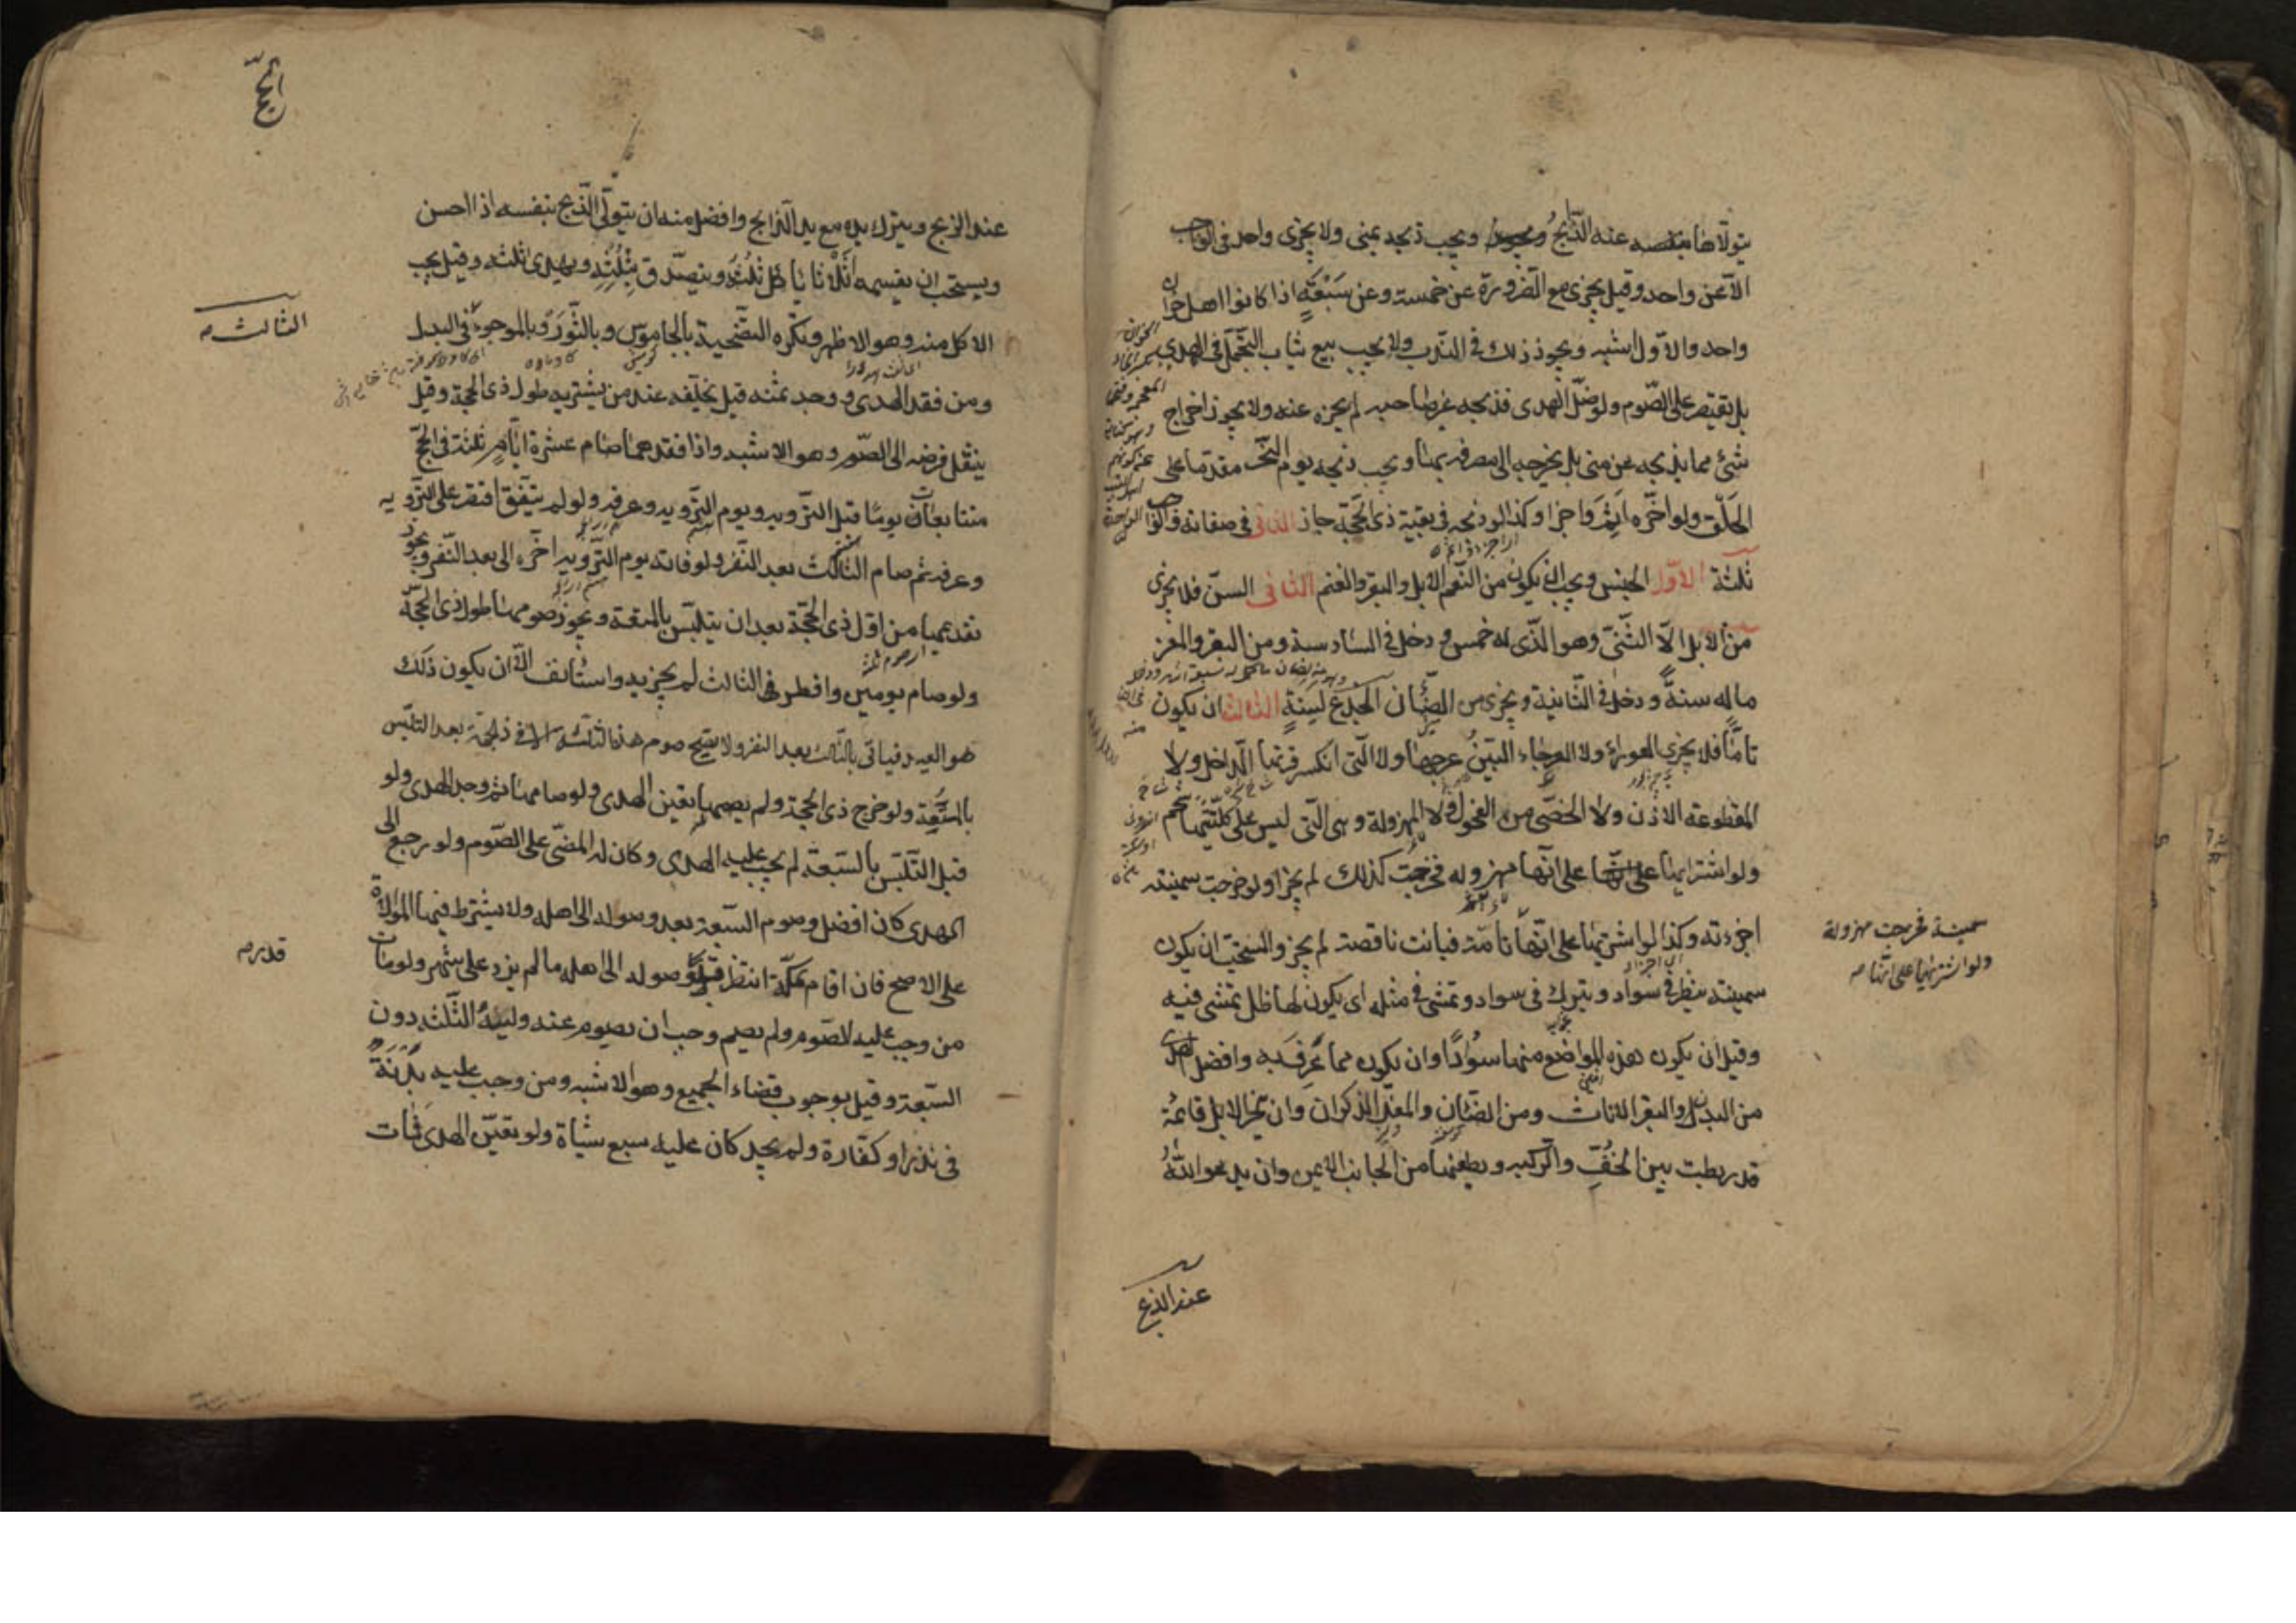 يتولاها بنفسه عنه الذابح ويجب ذبحه بمنى ولا يجزى واحد فى الواجب
الا عن واحد وقيل يجزى مع الضرورة عن خمسة وعن سبعة اذا كانوا اهل خوان
واحد والاول اشبه ويجوز ذلك فى الندب ولا يجب بيع ثياب التجمل فى الهدى
بل يقتصر على الصوم ولو ضل الهدى فذبحه غير صاحبه لم يجزه عنه ولا يجوز اخراج
شئ مما يذبحه عن منى بل يخرجه الى مصرفه بها ويجب ذبحه يوم النحر مقدما على
الحلق ولو اخره اثم واجزا وكذا لو ذبحه فى بقية ذى الحجة جاز الثانى فى صفاته والواجب
ثلثة الاول الجنس ويجب ان يكون من النعم الابل والبقر والغنم الثانى السن فلا يجزى
من الابل الا الثنى وهو الذى له خمس ودخل فى السادسة ومن البقر والمعز
ما له سنة ودخل فى الثانية ويجزى من الضان الجذع لسنة الثالث ان يكون
تاما فلا يجزى العوراء ولا العرجاء البين عرجها ولا التى انكسر قرنها الداخل ولا
المقطوعة الاذن ولا الخصى من الفحول ولا المهزولة وهى التى ليس على كليتيها شحم
ولو اشتراها على انها مهزوله فخرجت كذلك لم يجز ولو خرجت سمينة
اجزءته وكذا لو اشتريها على انها تامة فبانت ناقصة لم يجز والمستحب ان يكون
سمينة ينظر فى سواد ويبرك فى سواد وتمشى فى مثله اى يكون لها ظل تمشى فيه
وقيل ان يكون هذه المواضع منها سوادا وان يكون مما عرف به وافضل الهدى
من البدن والبقر الاناث ومن الضان والمعز الذكران وان ينحر الابل قائمة
قد ربطت بين الخف والركبه ويطعنها من الجانب الايمن وان يدعو الله
سمينة فخرجت مهزولة
ولو اشتريها على انها صه
عند الذبح
عند الذبح ويترك يده مع يد الذابح وافضل منه ان يتولى الذبح بنفسه اذا احسن
ويستحب ان يقسمه اثلاثا ياكل ثلثه ويتصدق بثلثه ويهدى ثلثه وقيل يجب
الاكل منه وهو الاظهر ويكره التضحية بالجاموس وبالثور وبالموجوء فى البدل
ومن فقد الهدى ووجد ثمنه قيل يخلفه عند من يشتريه طول ذى الحجة وقيل
ينقل فرضه الى الصوم وهو الاشبه واذا فقدهما صام عشرة ايام ثلثة فى الحج
متتابعات يوما قبل التروية ويوم التروية وعرفه ولو لم يتفق اقتصر على التروية
وعرفه ثم صام الثالث بعد النفر ولو فاته يوم التروية اخره الى بعد النفر ويجوز
تقديمها من اول ذى الحجة بعد ان يتلبس بالمتعة ويجوز صومها طول ذى الحجة
ولو صام يومين وافطر فى الثالث لم يجزيه واستانف الا ان يكون ذلك
هو العيد فياتى بالثالث بعد النفر ولا يصح صوم هذه الثلثة الا فى ذى الحجة بعد التلبس
بالمتعة ولو خرج ذى الحجة ولم يصمها تعين الهدى ولو صامها ثم وجد الهدى ولو
قبل التلبس بالسبعة لم يجب عليه الهدى وكان له المضى على الصوم ولو رجع الى
الهدى كان افضل وصوم السبعة بعد وصوله الى اهله ولا يشترط فيها الموالاة
على الاصح فان اقام بمكة انتظر قدر وصوله الى اهله ما لم يزد على شهر ولو مات
من وجب عليه الصوم ولم يصم وجب ان يصوم عنه وليه الثلثة دون
السبعة وقيل بوجوب قضاء الجميع وهو الاشبه ومن وجب عليه بدنة
فى نذر او كفارة ولم يجد كان عليه سبع شياة ولو تعين الهدى فمات
الثالثه صه
قدر صه